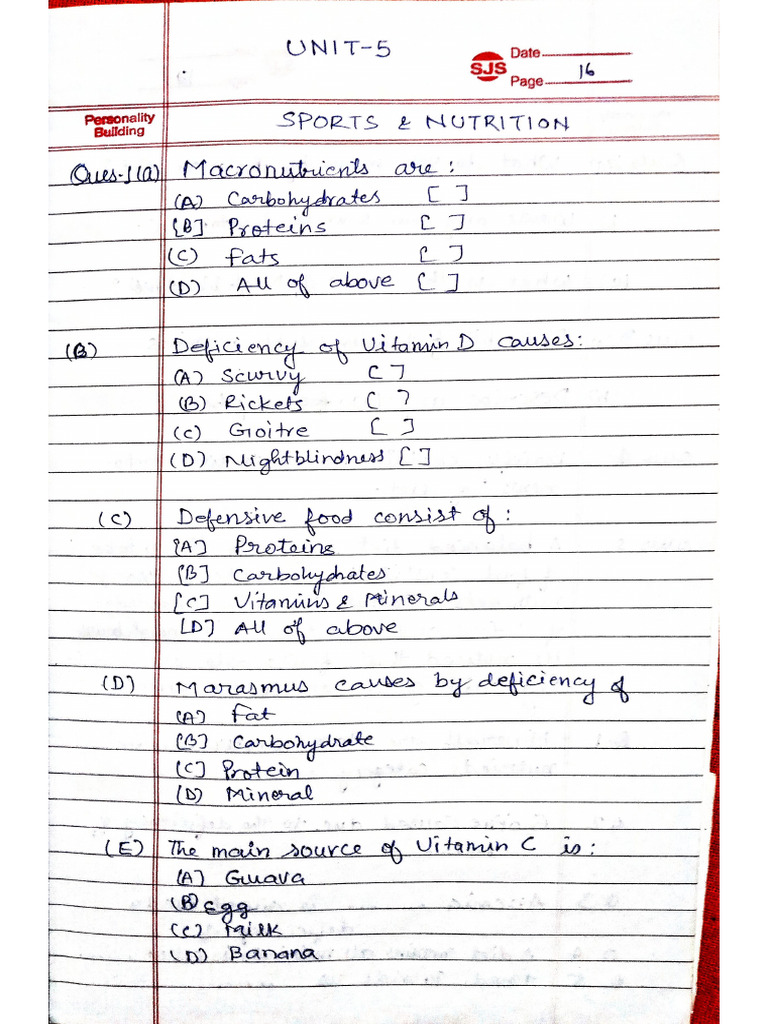 UNIT-5
SJS
Date
Page 16
Personality
Building
SPORTS & NUTRITION
Ques-1(a) Macronutrients are :
(A) Carbohydrates [ ]
[B] Proteins [ ]
(C) Fats [ ]
(D) All of above [ ]
(B) Deficiency of Vitamin D causes:
(A) Scurvy [ ]
(B) Rickets [ ]
(C) Goitre [ ]
(D) Nightblindness [ ]
(C) Defensive food consist of :
[A] Proteins
[B] Carbohydrates
[C] Vitamins & Minerals
[D] All of above
(D) Marasmus causes by deficiency of
(A) Fat
(B] Carbohydrate
(C] Protein
(D) Mineral
(E) The main source of Vitamin C is :
(A] Guava
(B) Egg
(C) Milk
(D) Banana